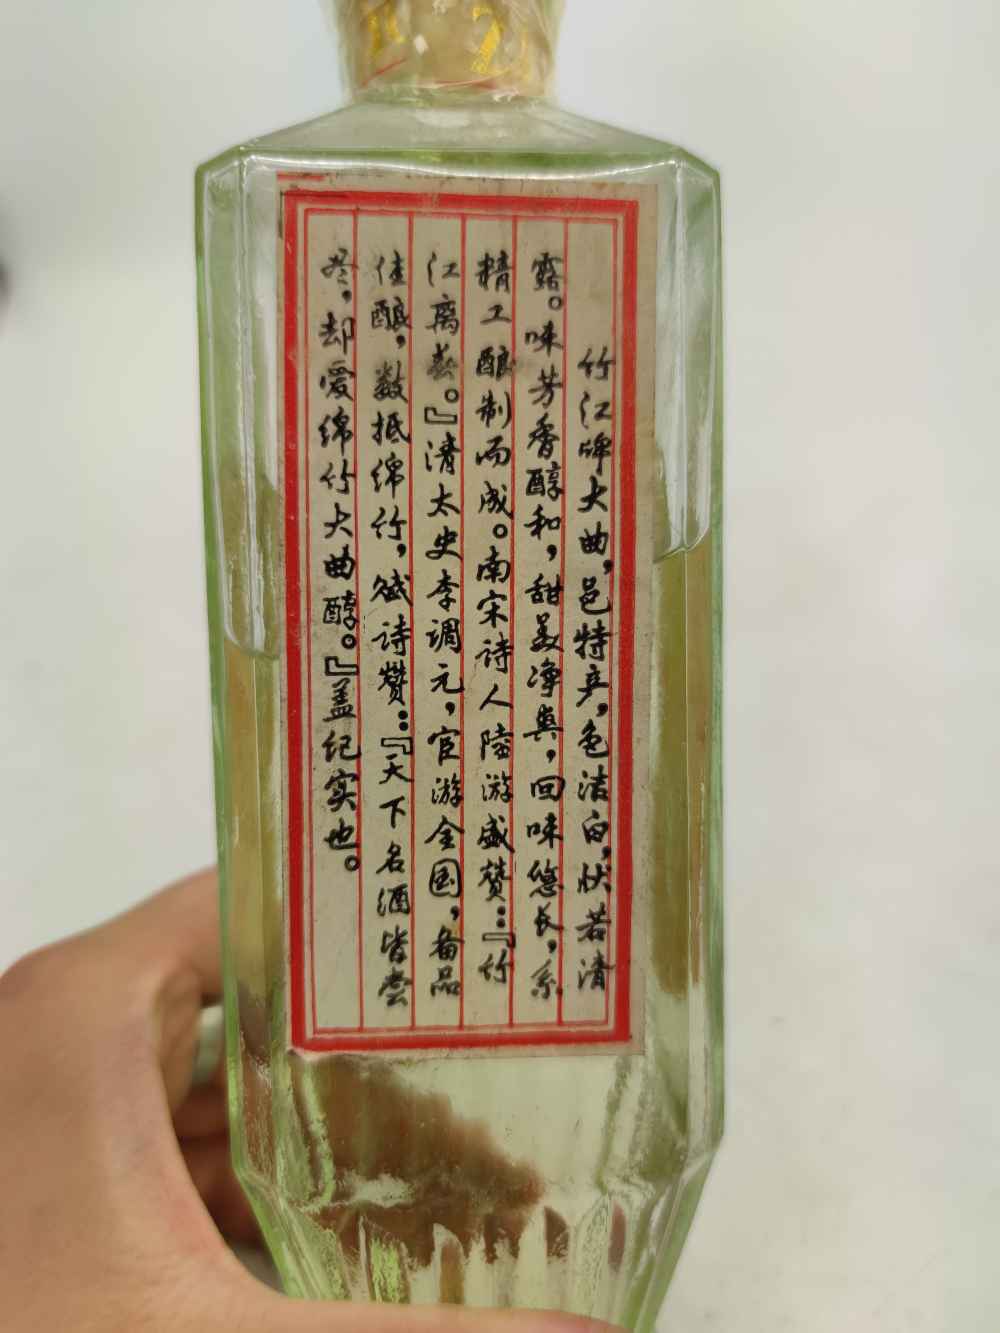 竹江牌大曲，邑特产，色洁白，状若清
露。味芳香醇和，甜美净爽，回味悠长，系
精工酿制而成。南宋诗人陆游盛赞：『竹
江离春。』清太史李调元，宦游全国，备品
佳酿，数抵绵竹，赋诗赞：『天下名酒皆尝
尽，却爱绵竹大曲醇。』盖纪实也。